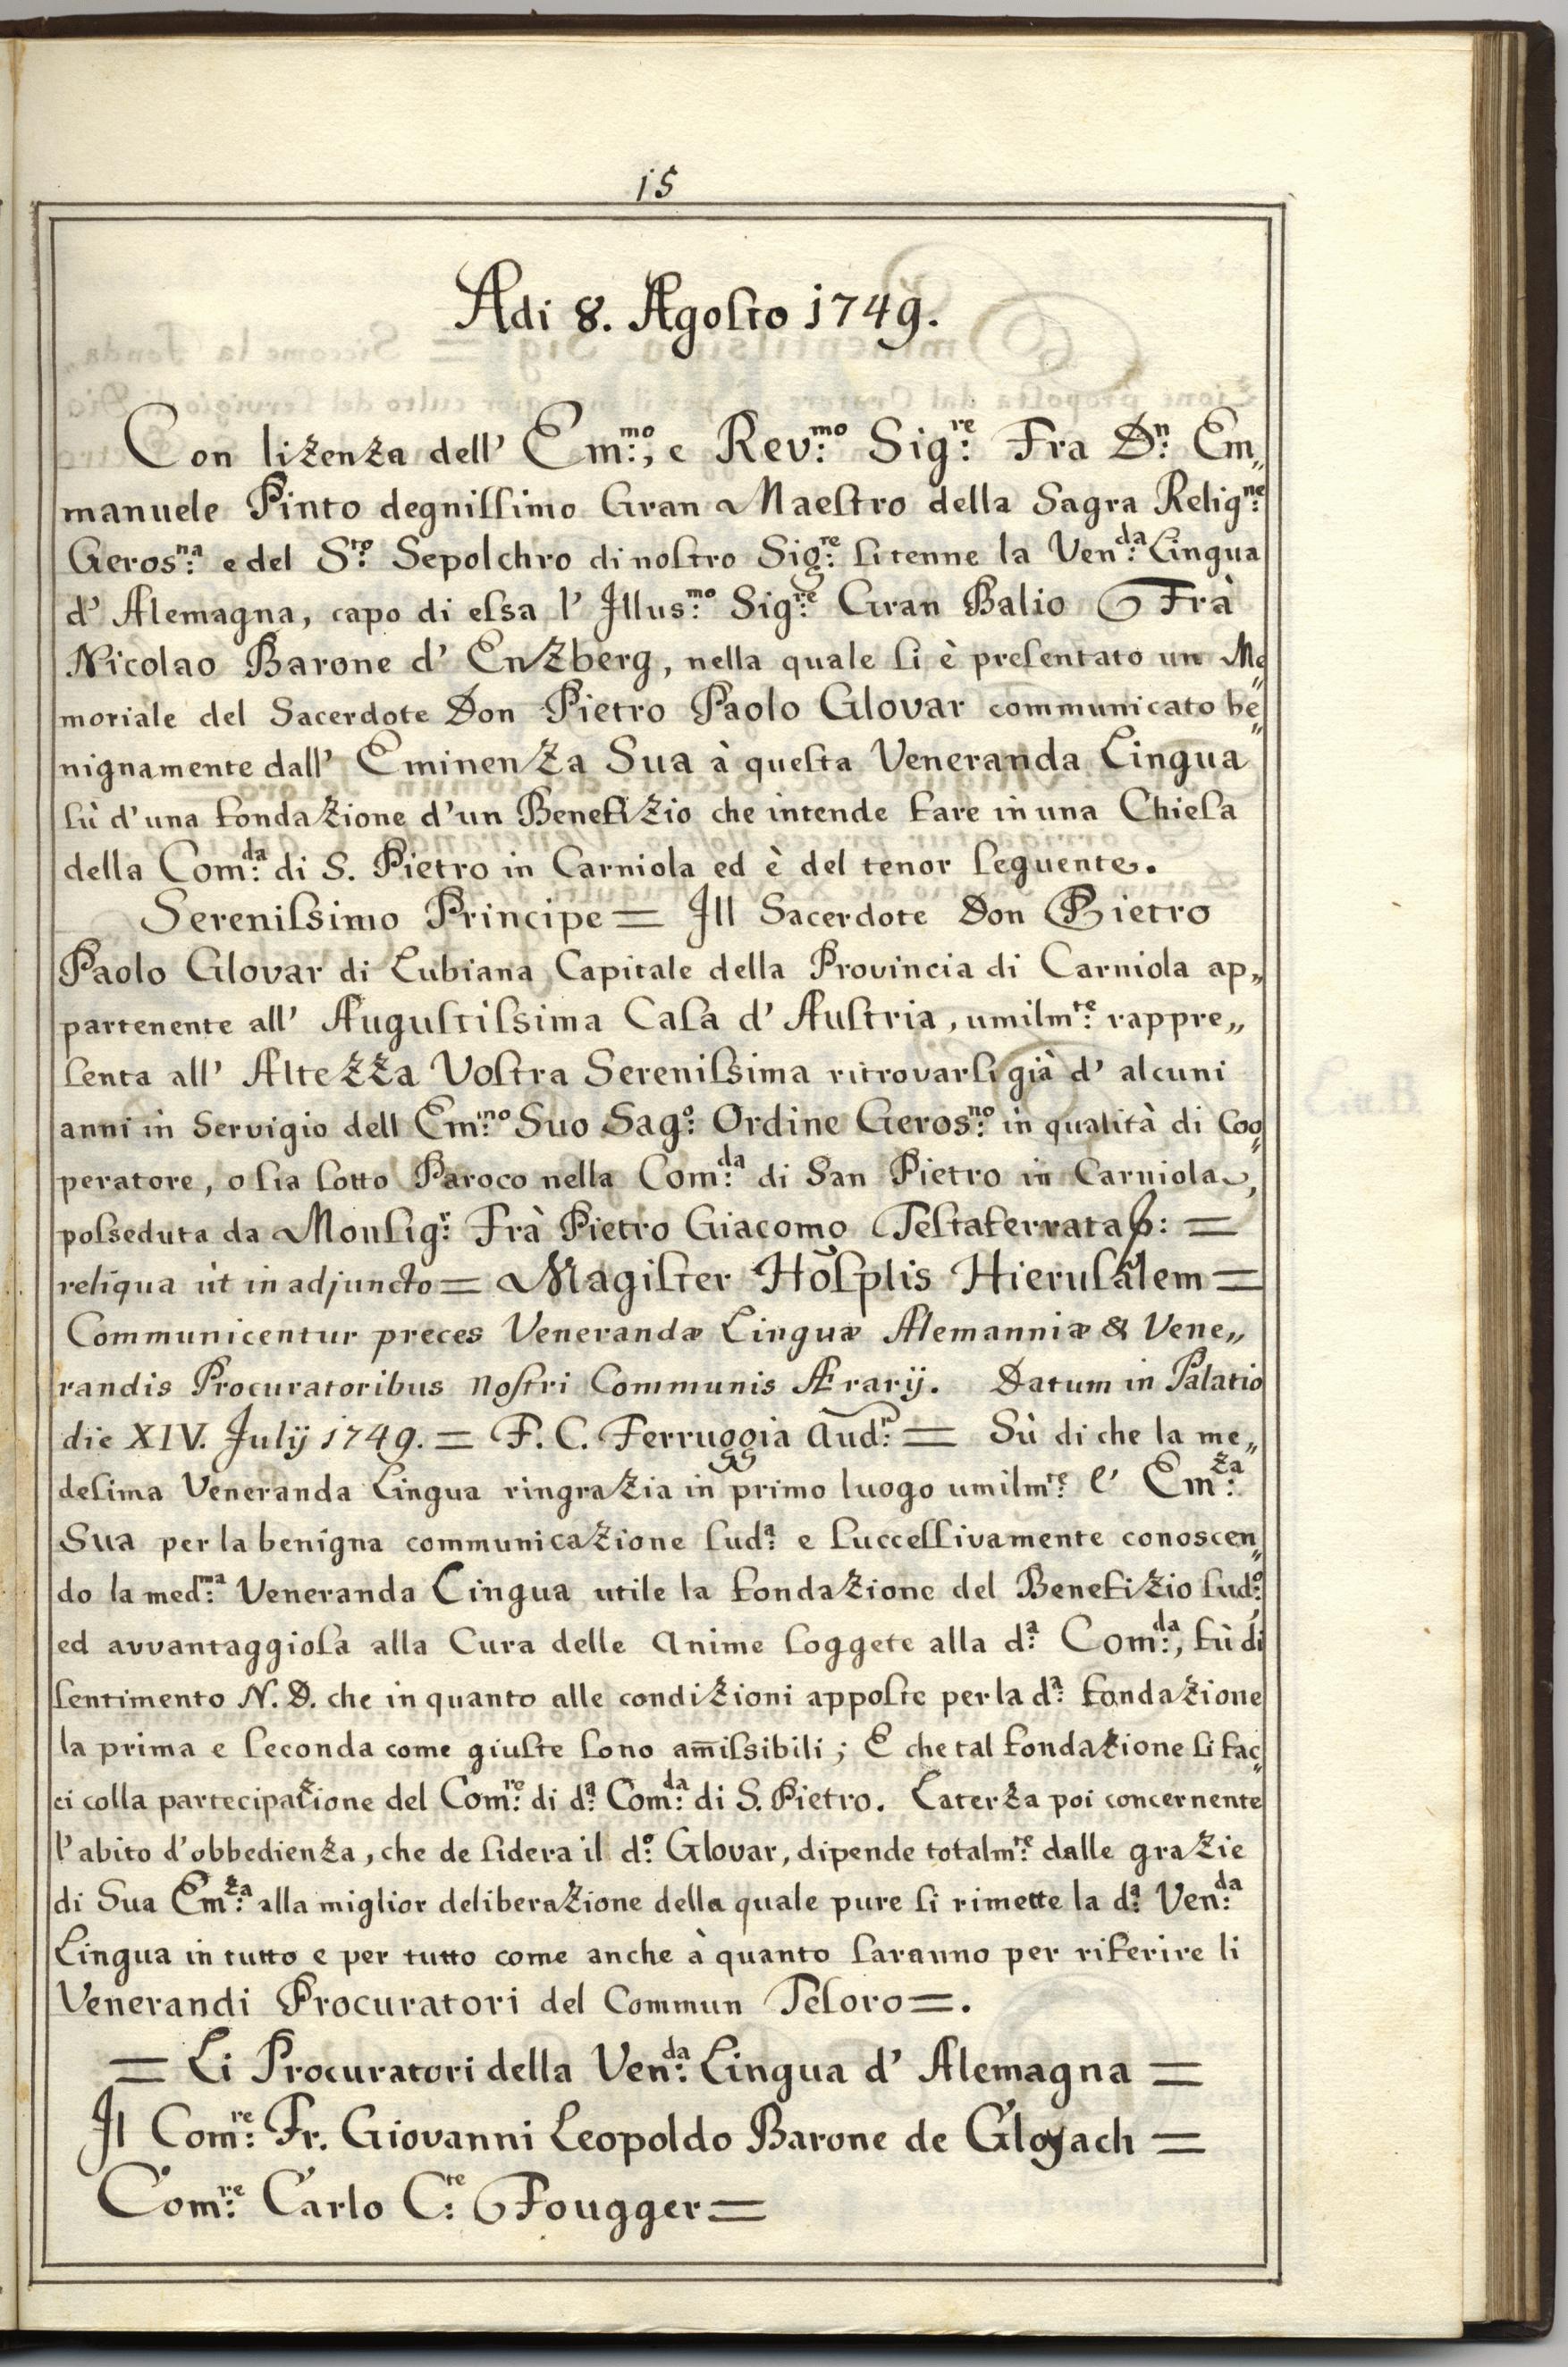 15
Adi 8. Agosto 1749.
Con lizenza dell' Em:mo, e Rev:mo Sig:re Fra D:n Em„
manuele Pinto degnissimo Gran Maestro della Sagra Relig:ne
Geros:na e del S:to Sepolchro di nostro Sig:re si tenne la Ven:da Lingua
d' Alemagna, capo di essa l' Illus:mo Sig:re Gran Balio Frà
Nicolao Barone d' Enzberg, nella quale si è presentato un Me„
moriale del Sacerdote Don Pietro Paolo Glovar communicato be„
nignamente dall' Eminenza Sua à questa Veneranda Lingua
sù d'una fondazione d'un Benefizio che intende fare in una Chiesa
della Com:da di S. Pietro in Carniola ed è del tenor seguente.
Serenissimo Principe = Ill Sacerdote Don Pietro
Paolo Glovar di Lubiana Capitale della Provincia di Carniola ap„
partenente all' Augustissima Casa d' Austria, umilm:te rappre„
senta all' Altezza Vostra Serenissima ritrovarsi già d' alcuni
anni in Servigio dell Em:mo Suo Sag:o Ordine Geros:no in qualità di Coo„
peratore, o sia sotto Paroco nella Com:da di San Pietro in Carniola,
posseduta da Monsig:r Frà Pietro Giacomo Testaferrata p: =
reliqua ùt in adjuncto = Magister Hõsplis Hierusalem =
Communicentur preces Venerandæ Linguæ Alemanniæ & Vene„
randis Procuratoribus nostri Communis Ærarij. Datum in Palatio
die XIV. Julij 1749. = F. C. Ferruggia Aud:r = Sù di che la me„
desima Veneranda Lingua ringrazia in primo luogo umilm:te l' Em:za
Sua per la benigna communicazione sud:a e successivamente conoscen„
do la med:ma Veneranda Lingua utile la fondazione del Benefizio sud:o,
ed avvantaggiosa alla Cura delle Anime soggete alla d:a Com:da, fù di
sentimento N. D. che in quanto alle condizioni apposte per la d:a fondazione
la prima e seconda come giuste sono am̄issibili; E che tal fondazione si fac„
ci colla partecipazione del Com:re di d:a Com:da di S. Pietro. La terza poi concernente
l'abito d'obbedienza, che desidera il d:o Glovar, dipende totalm:te dalle grazie
di Sua Em:za alla miglior deliberazione della quale pure si rimette la d:a Ven:da
Lingua in tutto e per tutto come anche à quanto saranno per riferire li
Venerandi Procuratori del Commun Tesoro =.
= Li Procuratori della Ven:da Lingua d' Alemagna =
Il Com:re Fr. Giovanni Leopoldo Barone de Gloyach =
Com:re Carlo C:te Fougger =